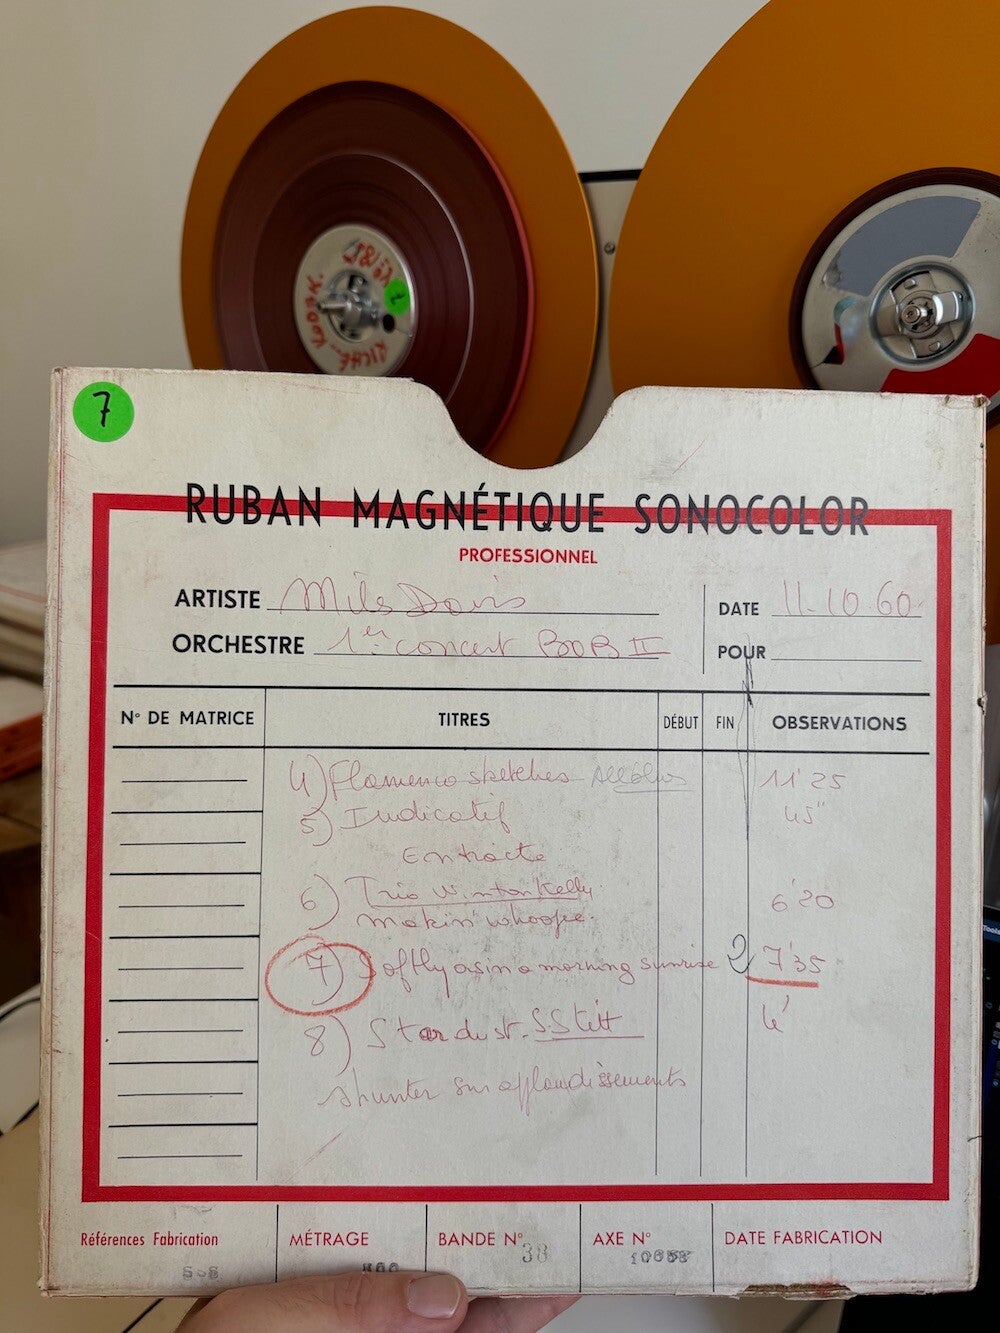 7
RUBAN MAGNÉTIQUE SONOCOLOR
PROFESSIONNEL
ARTISTE Miles Davis
DATE 11.10.60.
ORCHESTRE 1er concert BOB II
POUR
N° DE MATRICE TITRES DÉBUT FIN OBSERVATIONS
4) Flamenco sketches - Allblus 11'25
5) Indicatif 45"
Entracte
6) Trio Winton Kelly 6'20
makin' whoopie.
7) Softly as in a morning sunrise 2 7'35
8) Stardust. S Stitt 4'
shunter sur applaudissements
Références Fabrication MÉTRAGE BANDE N° 38 AXE N° DATE FABRICATION
Tools